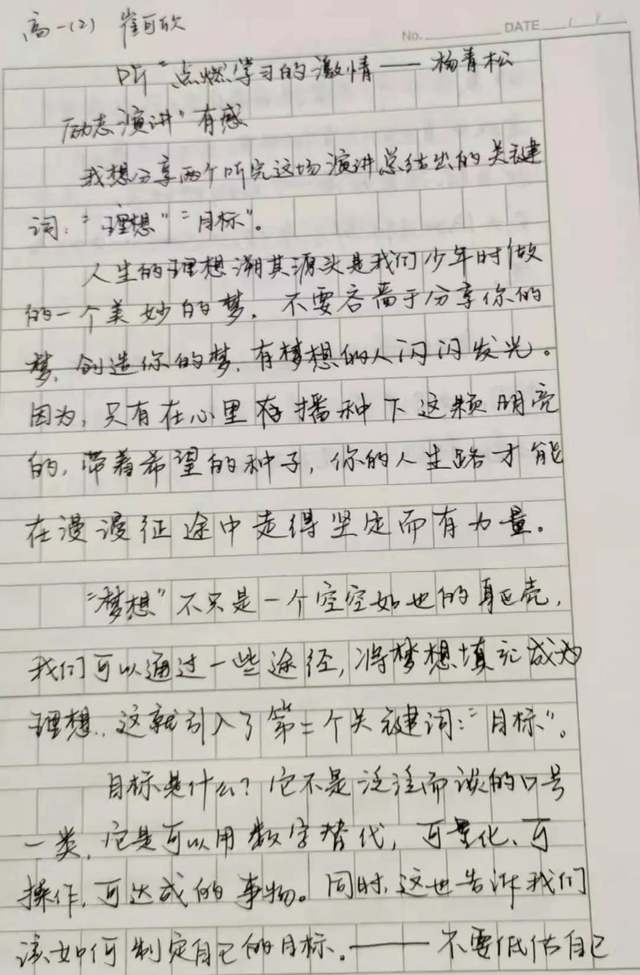 高一(2) 崔可欣
No. DATE / /
听"点燃学习的激情——杨青松
励志演讲"有感
我想分享两个听完这场演讲总结出的关键
词:"理想""目标"。
人生的理想溯其源头是我们少年时做
的一个美妙的梦。不要吝啬于分享你的
梦,创造你的梦,有梦想的人闪闪发光。
因为,只有在心里存播种下这颗明亮
的,带着希望的种子,你的人生路才能
在漫漫征途中走得坚定而有力量。
"梦想"不只是一个空空如也的躯壳,
我们可以通过一些途径,将梦想填充成为
理想。这就引入了第二个关键词:"目标"。
目标是什么?它不是泛泛而谈的口号
一类,它是可以用数字替代,可量化、可
操作,可达成的事物。同时,这也告诉我们
该如何制定自己的目标。——不要低估自己